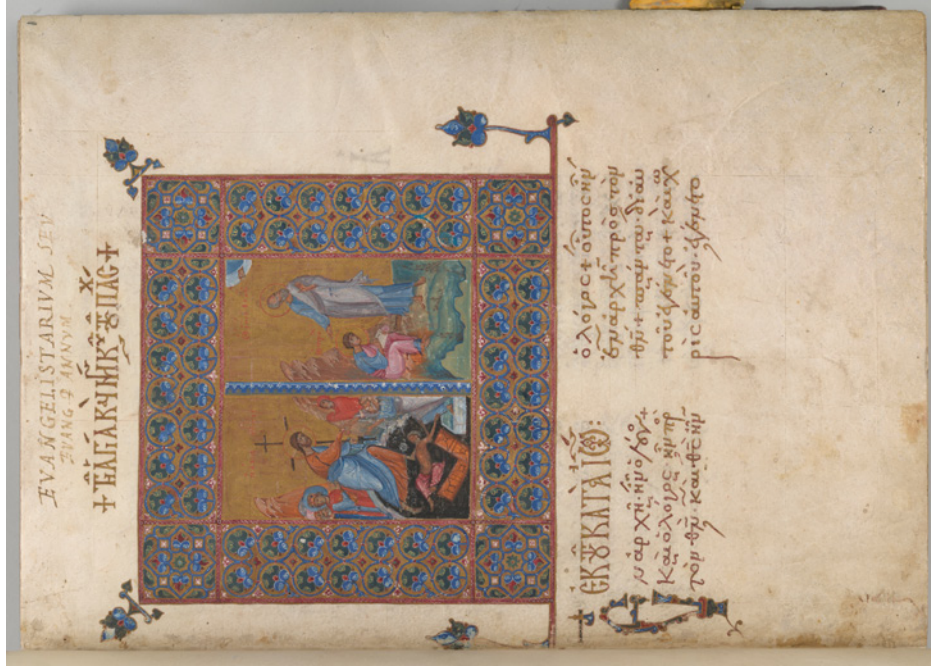 EVANGELISTARIVM SEV
EVANG ANNVM
ἐκ τοῦ κατὰ Ἰω:
Ἐν ἀρχῇ ἦν ὁ λόγος +
Καὶ ὁ λόγος ἦν πρ
τὸν θν̄· καὶ θς̄ ἦν
ὁ λόγος + οὗτος ἦν
ἐν ἀρχῇ πρὸς τὸν
θν̄ + πάντα δι αυ
τοῦ ἐγένετο + καὶ χω
ρὶς αὐτοῦ ἐγένετο